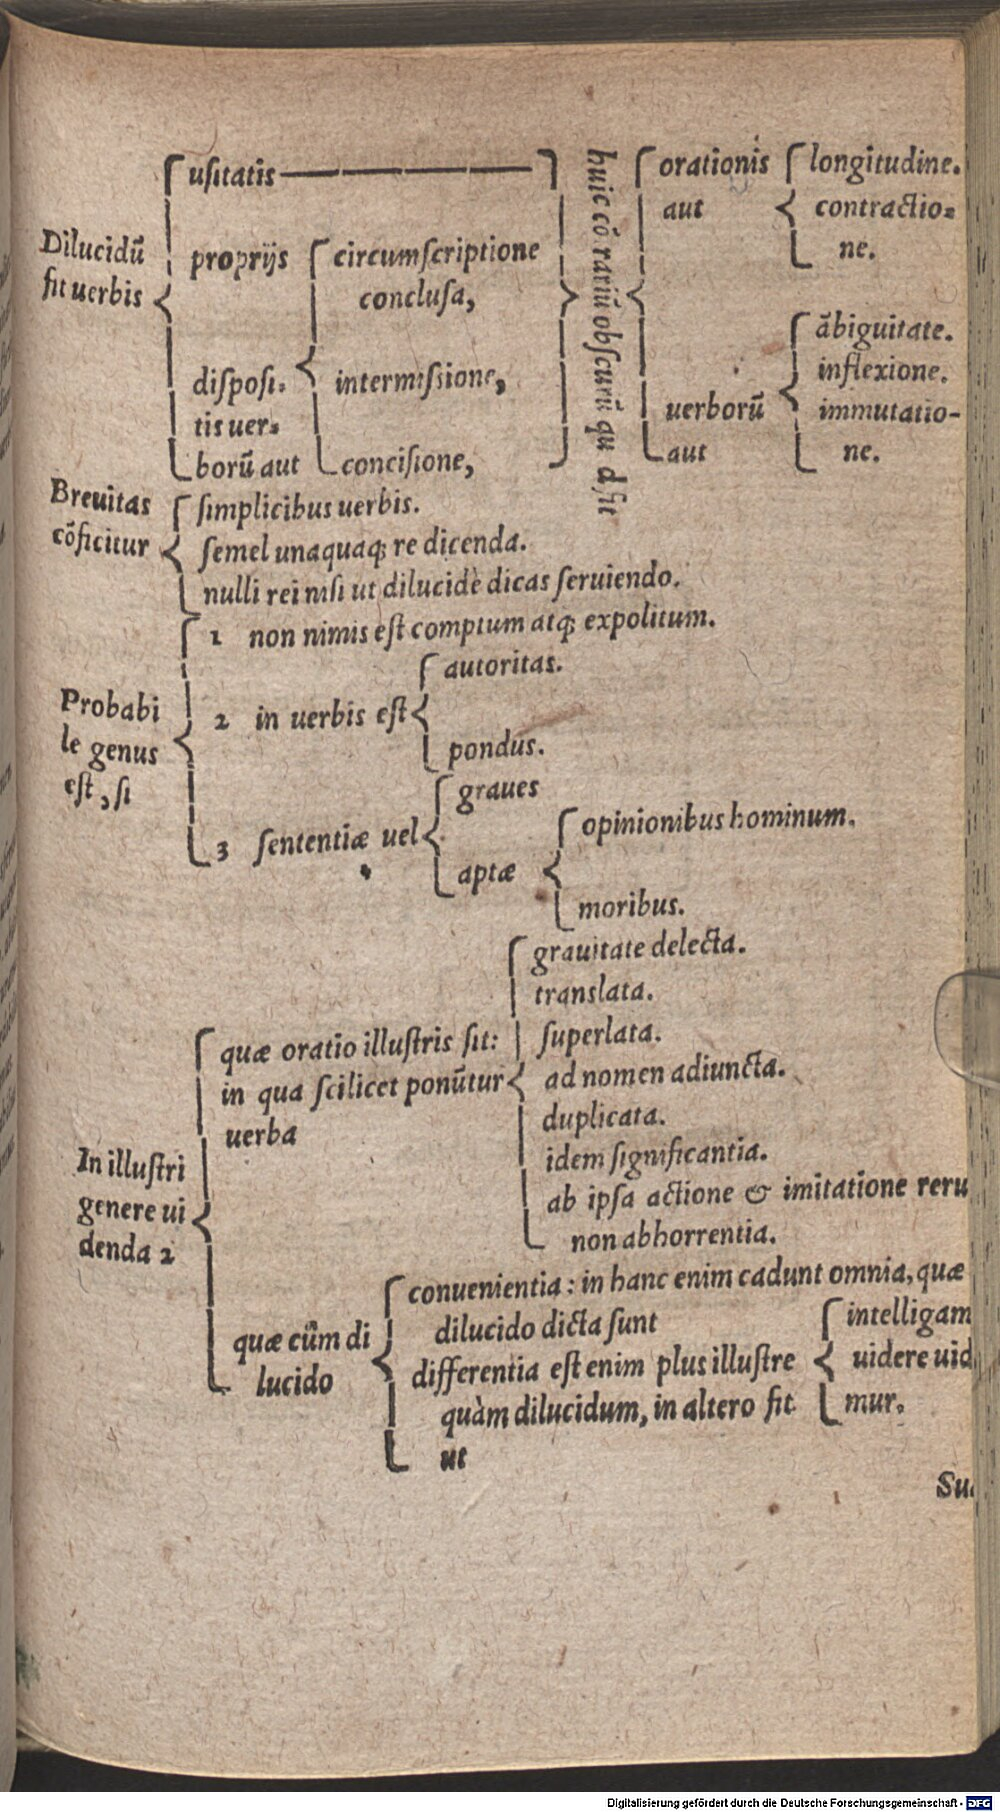 Dilucidū
fit uerbis
usitatis
proprijs
disposi-
tis uer-
borū aut
circumscriptione
conclusa,
intermissione,
concisione,
huic cō rariū obscurū qu d fit
orationis
aut
longitudine.
contractio-
ne.
uerborū
aut
ābiguitate.
inflexione.
immutatio-
ne.
Breuitas
cōficitur
simplicibus uerbis.
semel unaquaq; re dicenda.
nulli rei nisi ut dilucidè dicas seruiendo.
Probabi
le genus
est, si
1 non nimis est comptum atq; expolitum.
2 in uerbis est
autoritas.
pondus.
3 sententiæ uel
graues
aptæ
opinionibus hominum.
moribus.
In illustri
genere ui
denda 2
quæ oratio illustris sit:
in qua scilicet ponūtur
uerba
grauitate delecta.
translata.
superlata.
ad nomen adiuncta.
duplicata.
idem significantia.
ab ipsa actione & imitatione reru
non abhorrentia.
quæ cūm di
lucido
conuenientia: in hanc enim cadunt omnia, quæ
dilucido dicta sunt
differentia est enim plus illustre
quàm dilucidum, in altero fit
ut
intelligam
uidere uid
mur.
Su
Digitalisierung gefördert durch die Deutsche Forschungsgemeinschaft - DFG